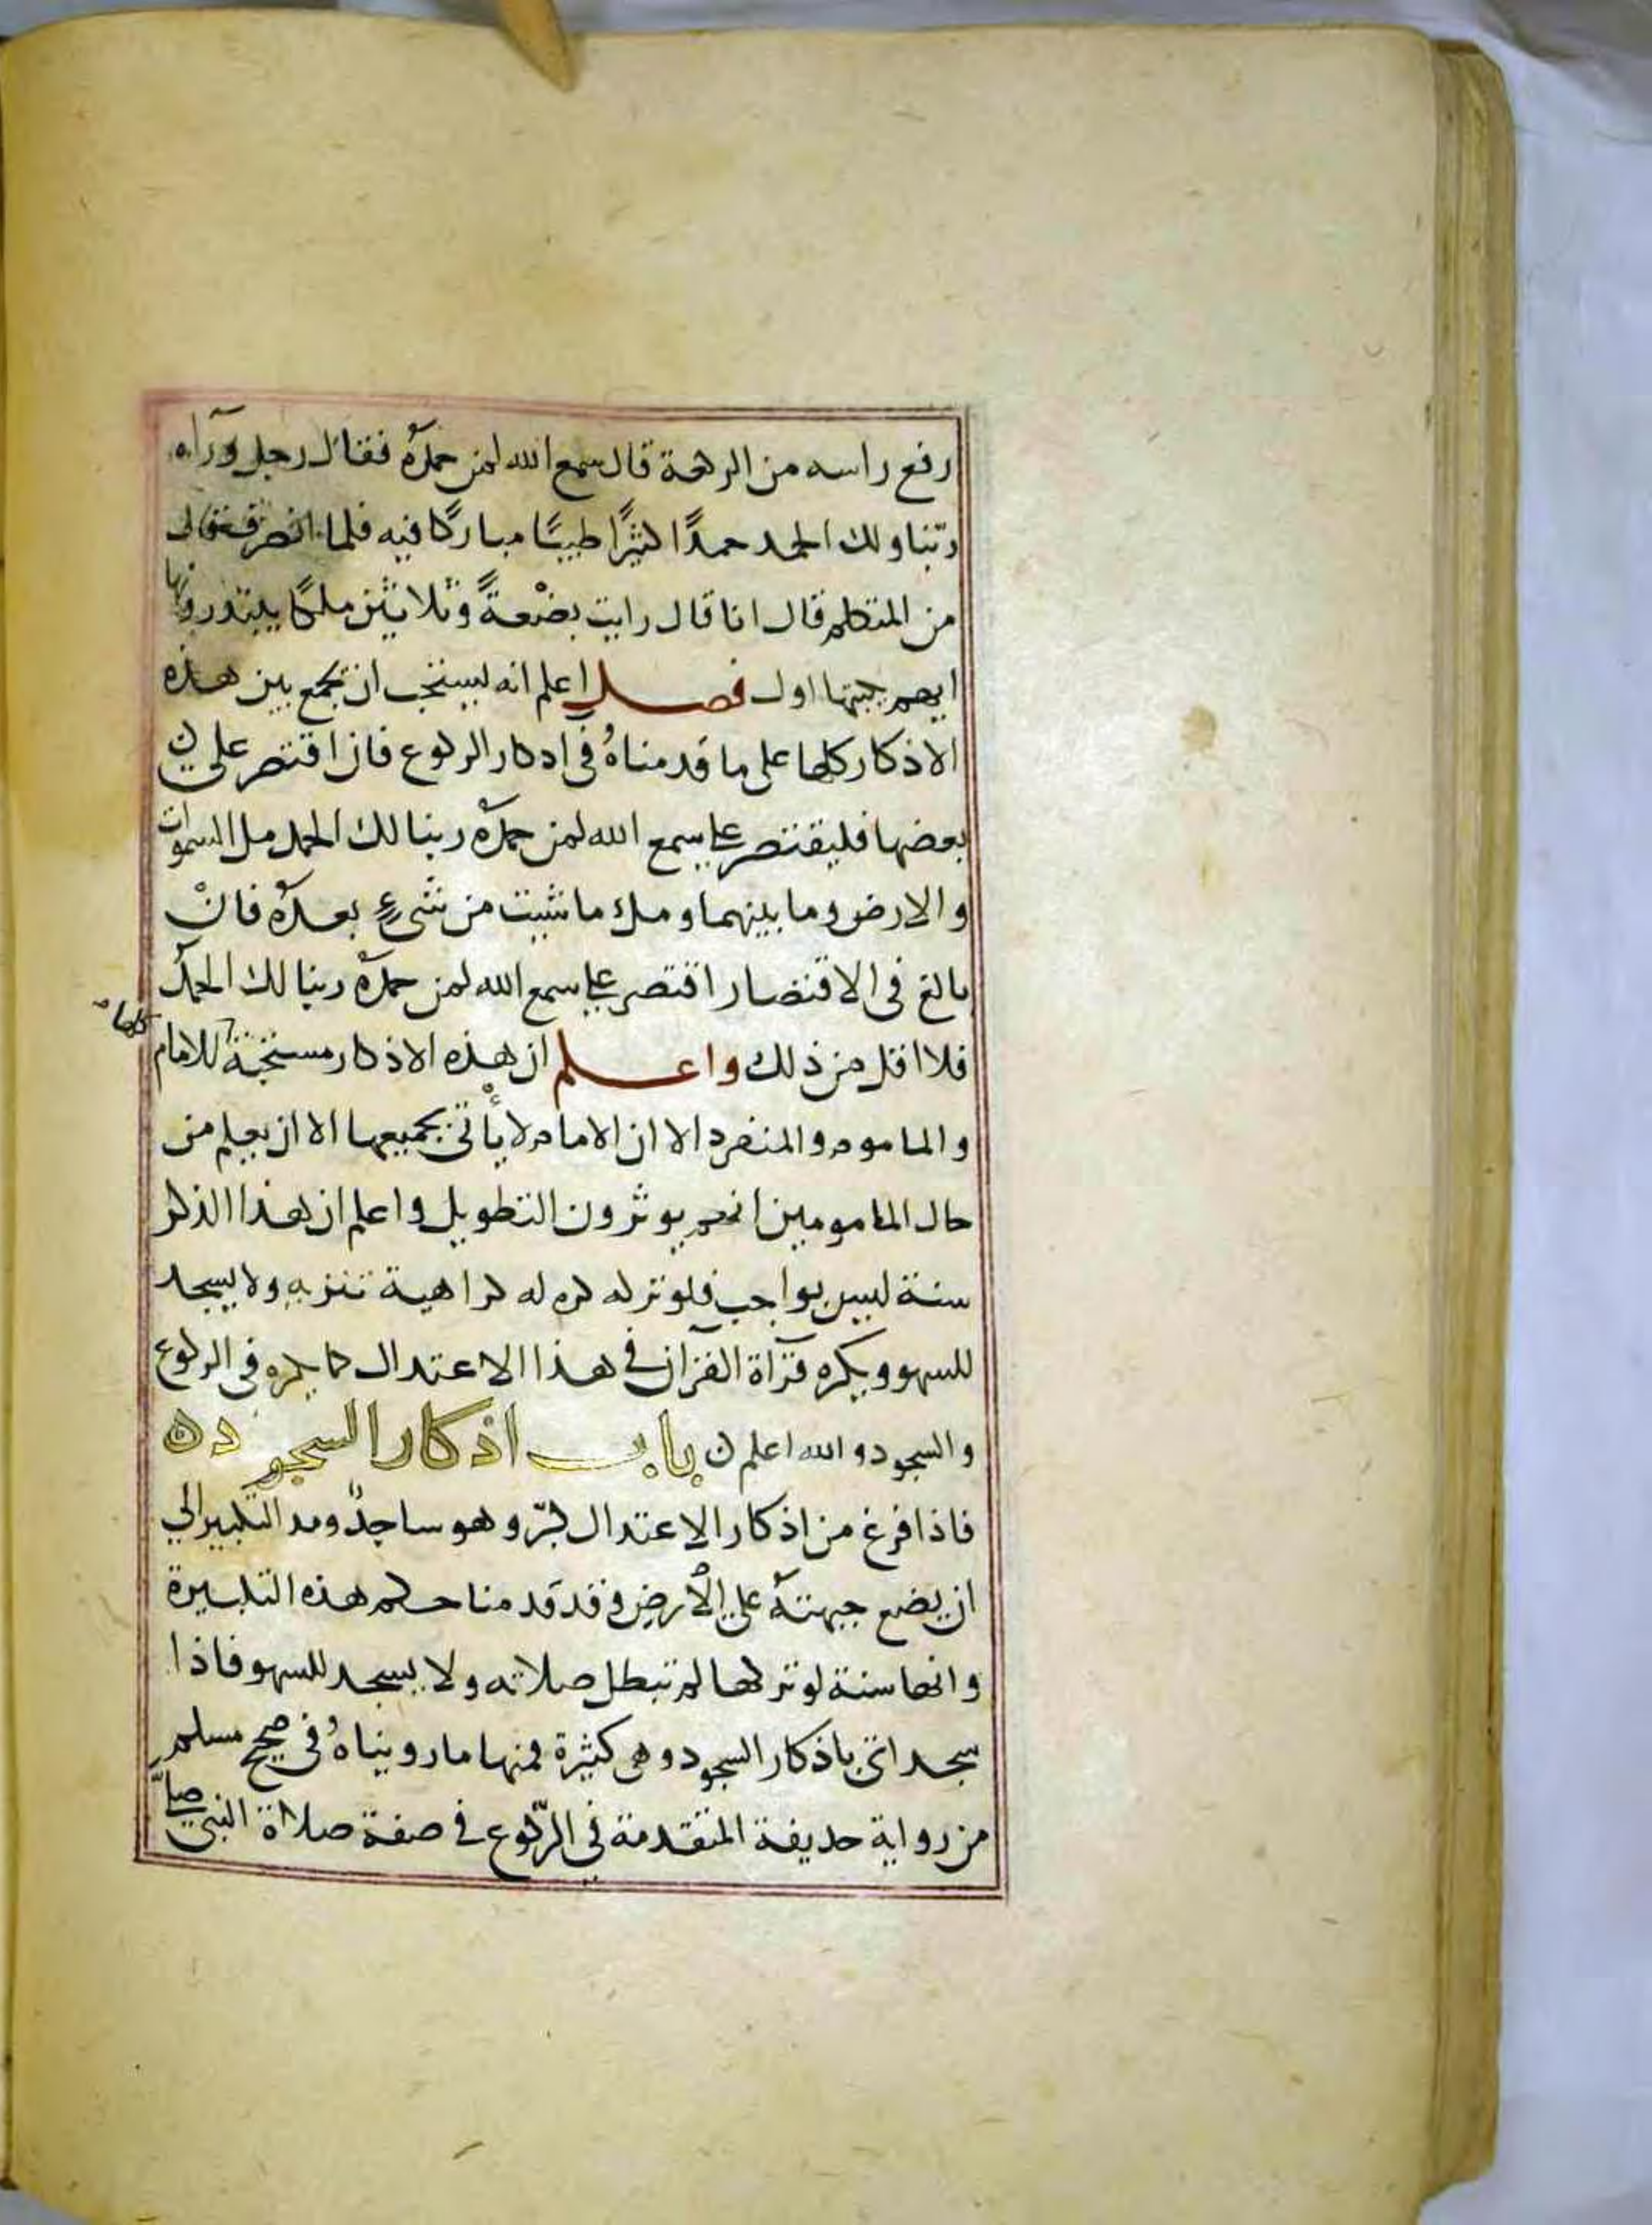 رفع راسه من الركعة قال سمع الله لمن حمدهُ فقال رجل وَرآه
ربّنا ولك الحمد حمدًا كثيرًا طيبًا مباركًا فيه فلما انصرف قال
من المتكلم قال انا قال رايت بضْعةً وثلاثين ملكًا يبتدرونها
ايهم يكتبها اول فصل اعلم انه يستحب ان يجمع بين هذه
الاذكار كلها على ما قدمناهُ في اذكار الركوع فان اقتصر على
بعضها فليقتصر على سمع الله لمن حمده ربنا لك الحمد مل السموات
والارض وما بينهما ومل ما شيت من شيءٍ بعدهُ فانْ
بالغ في الاقتصار اقتصر على سمع الله لمن حمده ربنا لك الحمدُ
فلا اقل من ذلك واعلم ان هذه الاذكار مستحبة للامام
كلها
والماموم والمنفرد الا ان الامام لا يأتي بجميعها الا ان يعلم من
حال المامومين انهم يوثرون التطويل واعلم ان هذا الذكر
سنة ليس بواجب فلو تركه كره له كراهية تنزيه ولا يسجد
للسهو ويكره قرآة القران في هذا الاعتدال كما يكره في الركوع
والسجود والله اعلم ن باب اذكار السجود ن
فاذا فرغ من اذكار الاعتدال كبّر وهو ساجدٌ ومد التكبير الى
ان يضع جبهته على الأرض وقد قدمنا حكم هذه التكبيرة
وانها سنة لو تركها لم تبطل صلاته ولا يسجد للسهو فاذا
سجد اتى باذكار السجود وهي كثيرة فمنها ما رويناهُ في صحيح مسلم
من رواية حذيفة المتقدمة في الرّكوع في صفة صلاة النبي صلّى